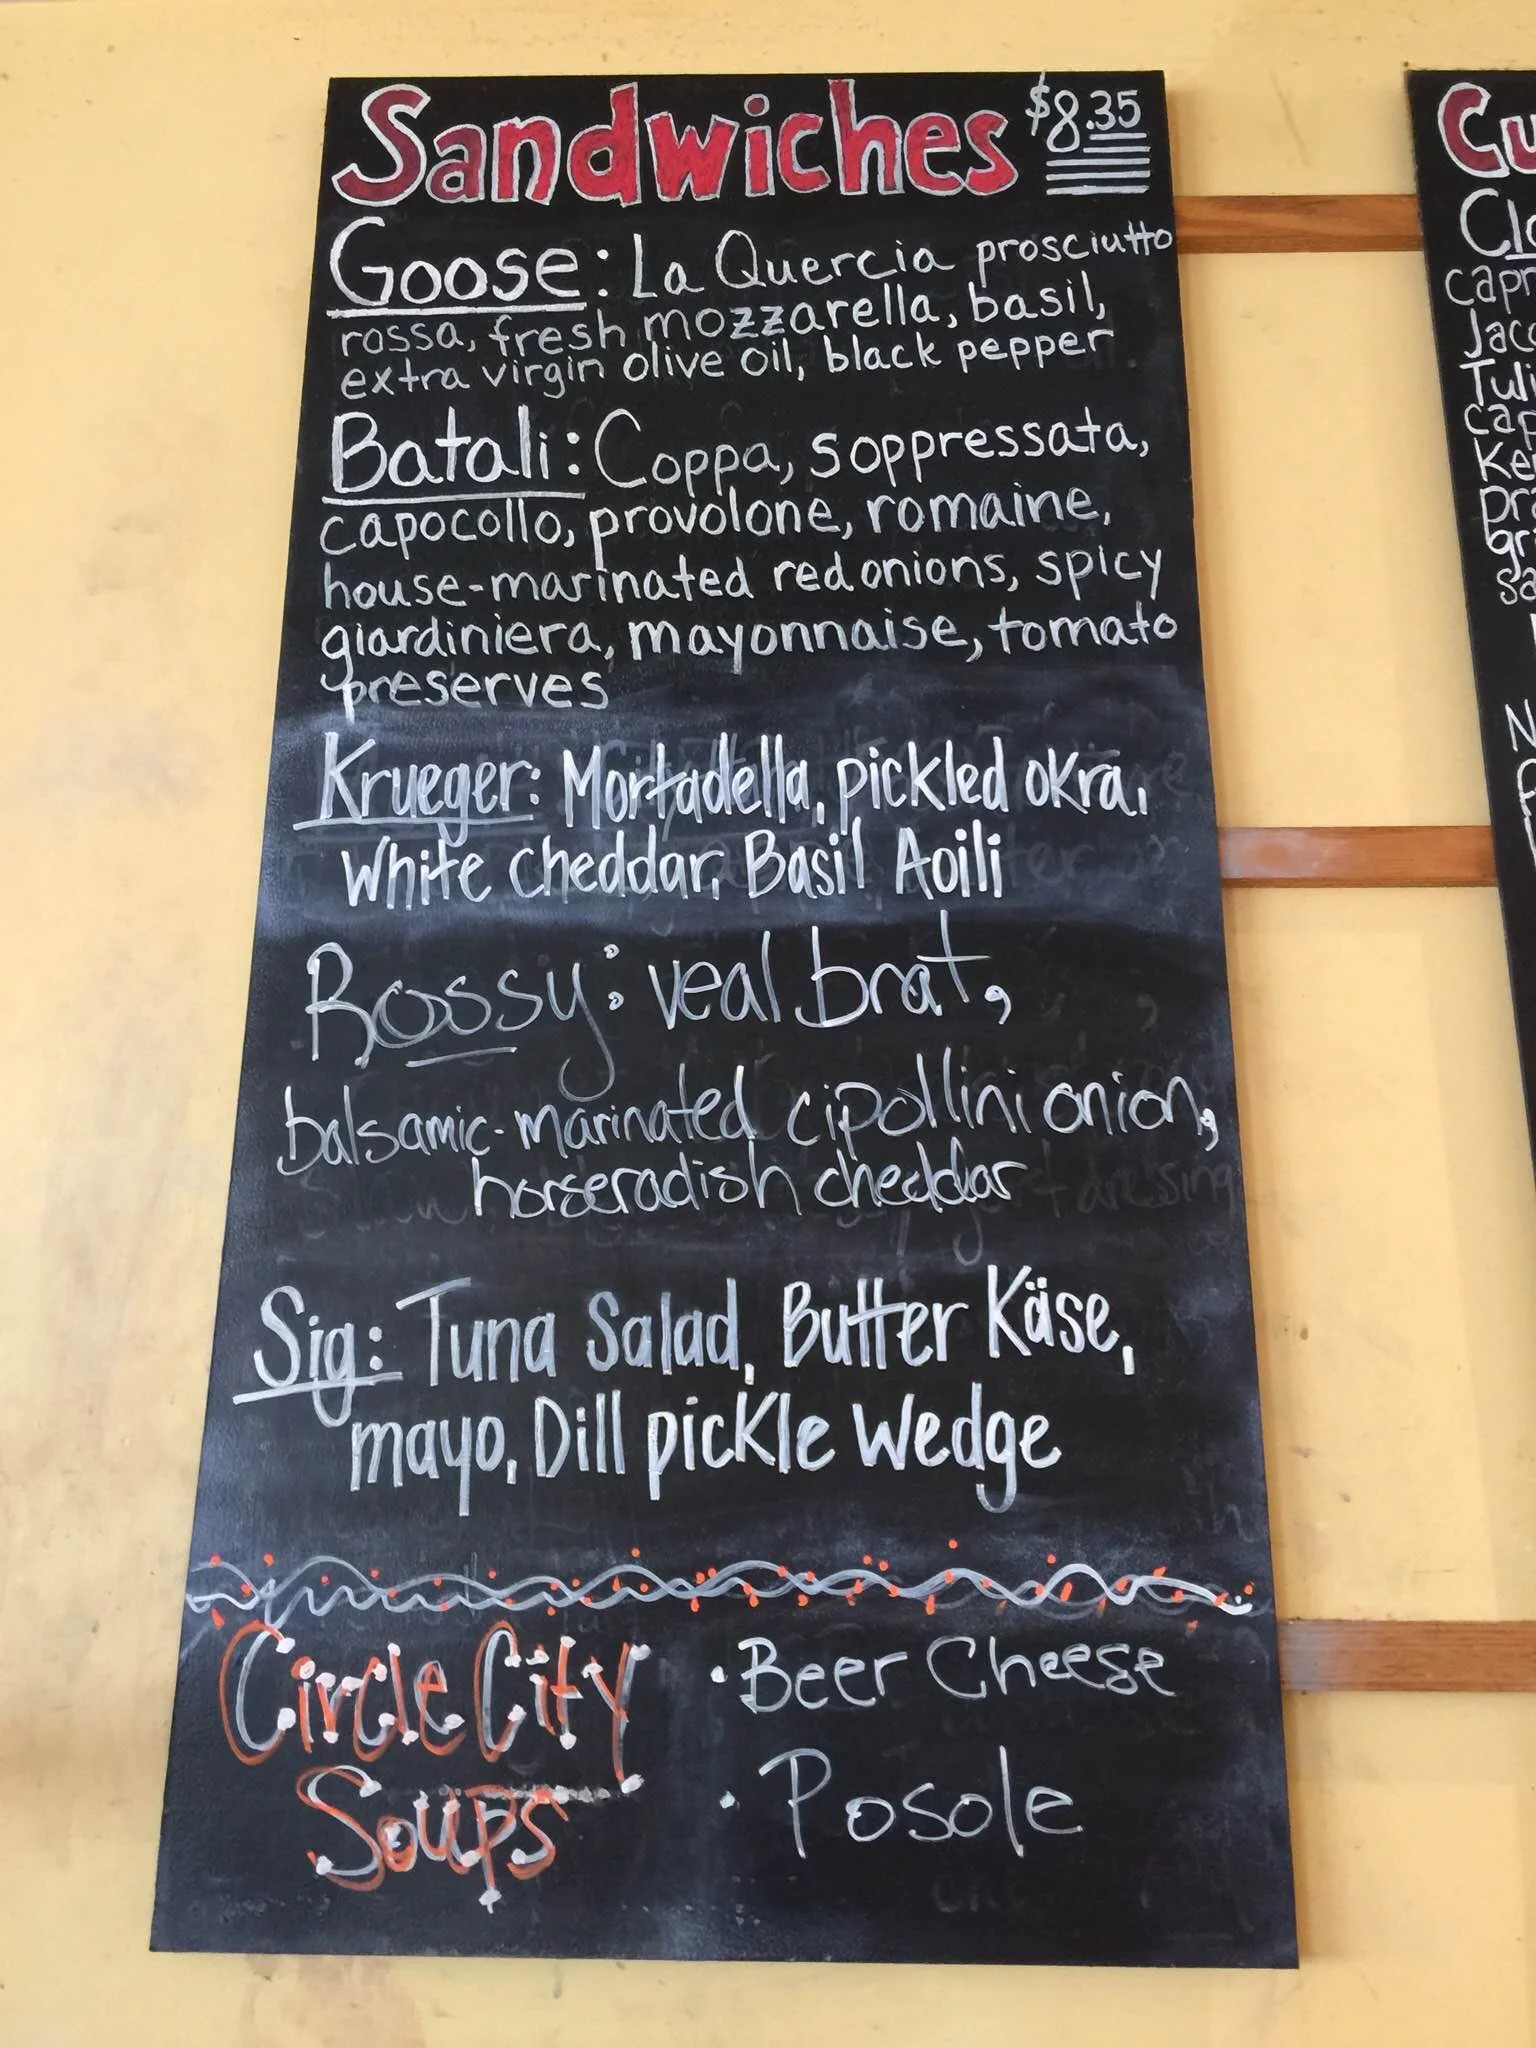 Sandwiches $8.35
Goose: La Quercia prosciutto
rossa, fresh mozzarella, basil,
extra virgin olive oil, black pepper
Batali: Coppa, soppressata,
capocollo, provolone, romaine,
house-marinated red onions, spicy
giardiniera, mayonnaise, tomato
preserves
Krueger: Mortadella, pickled okra,
White cheddar, Basil Aoili
Rossy: veal brat,
balsamic-marinated cipollini onion,
horseradish cheddar
Sig: Tuna Salad, Butter Käse,
mayo, Dill pickle Wedge
Circle City
Soups
· Beer Cheese
· Posole
Cu
Cl
capr
Jac
Tuli
cap
Ke
pr
gr
sa